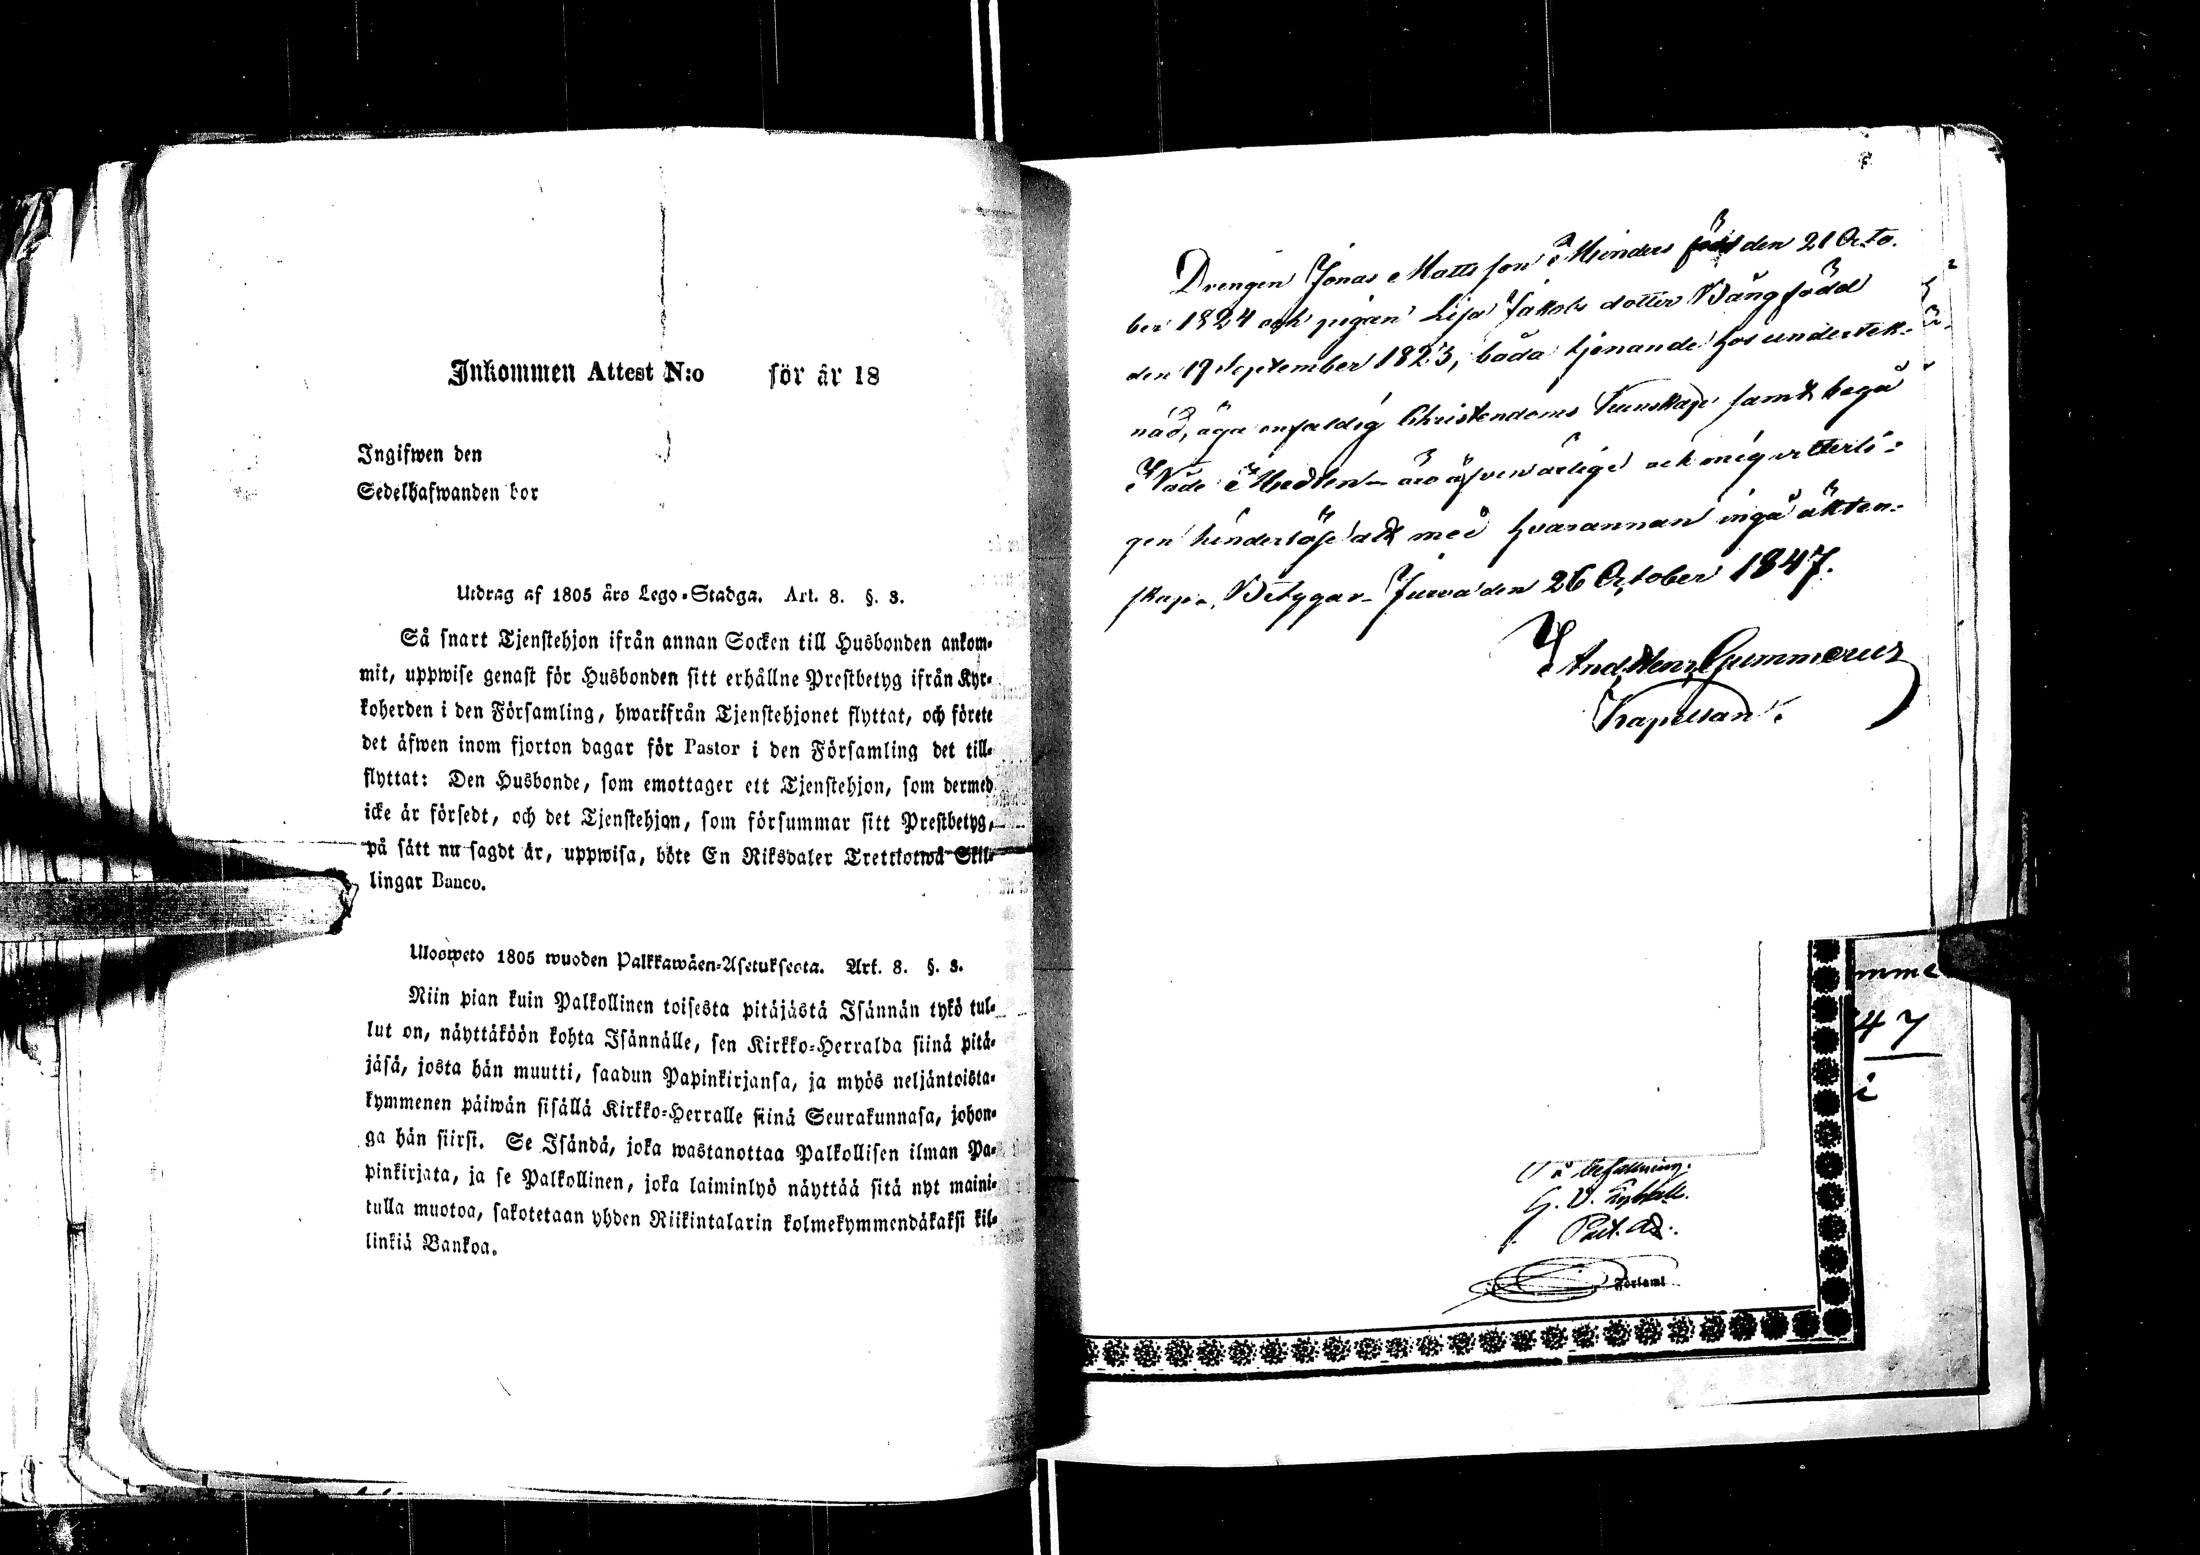 Inkommen Attest N:o för år 18
Ingifwen den
Sedelhafwanden bor
Utdrag af 1805 års Lego-Stadga. Art. 8. §. 3.
Så snart Tjenstehjon ifrån annan Socken till Husbonden ankom-
mit, uppwise genast för Husbonden sitt erhållne Prestbetyg ifrån Kyr-
koherden i den Församling, hwarifrån Tjenstehjonet flyttat, och förete
det äfwen inom fjorton dagar för Pastor i den Församling det till-
flyttat: Den Husbonde, som emottager ett Tjenstehjon, som dermed
icke är försedt, och det Tjenstehjon, som försummar sitt Prestbetyg,
på sätt nu sagdt är, uppwisa, böte En Riksdaler Trettiotwå Skil-
lingar Banco.
Ulosweto 1805 wuoden Palkkawäen-Asetuksesta. Art. 8. §. 3.
Niin pian kuin Palkollinen toisesta pitäjästä Isännän tykö tul-
lut on, näyttäköön kohta Isännälle, sen Kirkko-Herralda siinä pitä-
jäsä, josta hän muutti, saadun Papinkirjansa, ja myös neljäntoista-
kymmenen päiwän sisällä Kirkko-Herralle siinä Seurakunnasa, johon-
ga hän siirsi. Se Isändä, joka wastanottaa Palkollisen ilman Pa-
pinkirjata, ja se Palkollinen, joka laiminlyö näyttää sitä nyt maini-
tulla muotoa, sakotetaan yhden Riikintalarin kolmekymmendäkaksi kil-
linkiä Bankoa.
Drengen Jonas Mattsson Minders född den 21 Octo-
ber 1824 och pigan Lisa Jakobs dotter Bång född
den 19 September 1823, båda tjenande hos underteck-
nad, äga enfaldig Christendoms Kunskap samt begå
Nåde Medlen - äro äfven ärlige och mig vetterli-
gen hinderlöse att med hvarannan ingå äkten-
skap, Betygar - Jurva den 26 October 1847.
And. Henr. Gummerus
Kapellan.
mme
47
På befallning.
G. V.